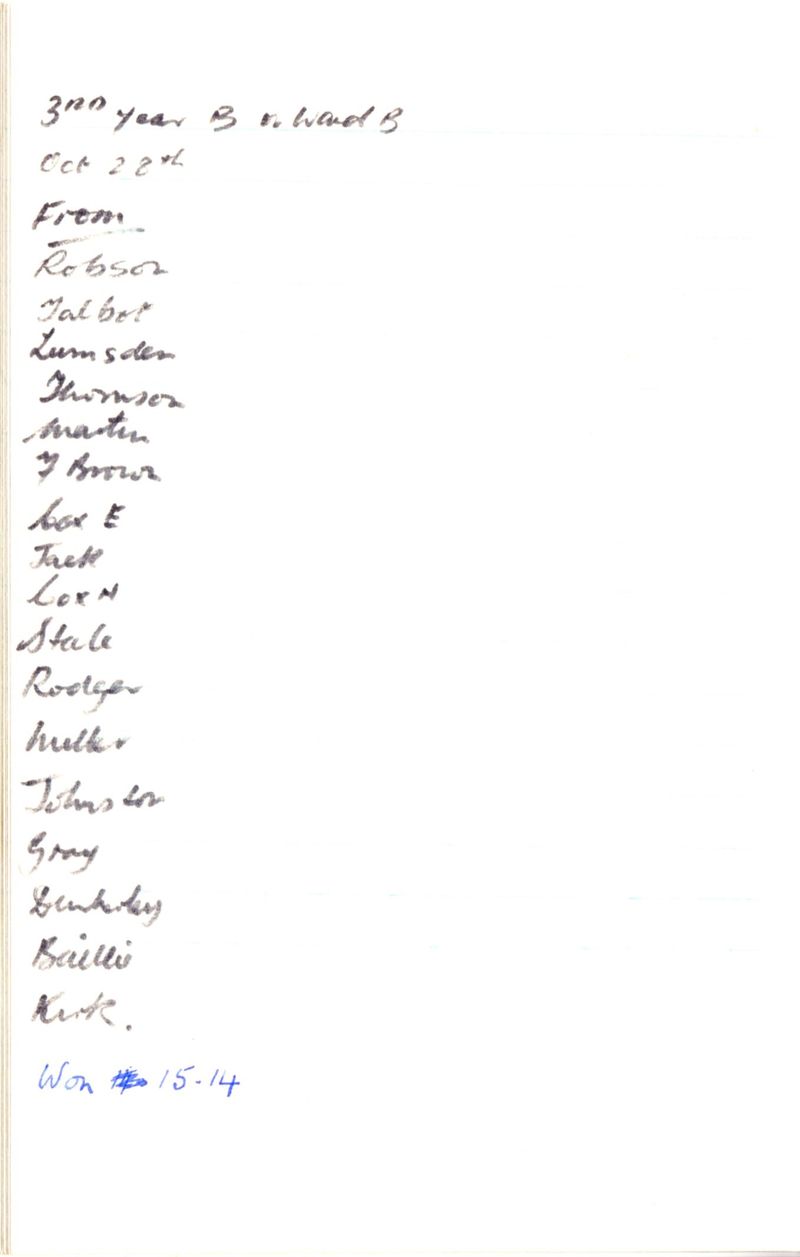 3RD Year B v Ward B
Oct 28th
From
Robson
Talbot
Lumsden
Thomson
Martin
J Brown
Cox E
Jack
Cox N
Stale
Rodger
Miller
Johnston
Gray
Baillie
Kirk.
Won 15-14